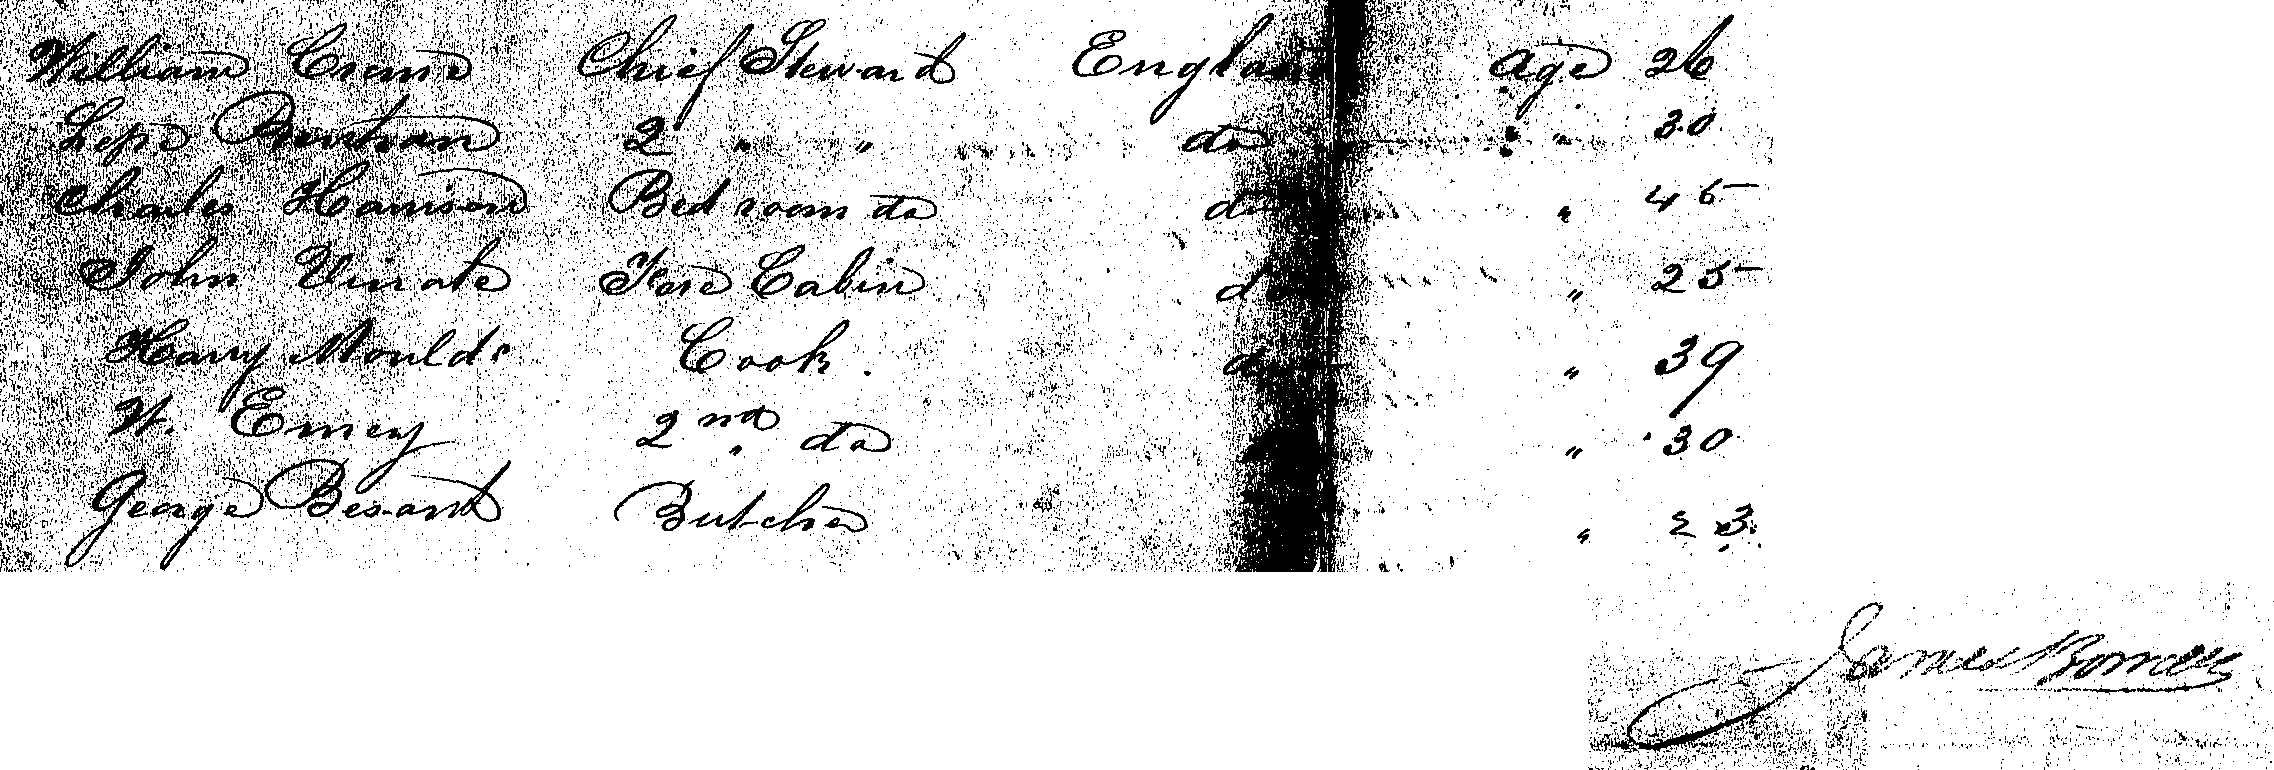 William Crane Chief Steward England Age 26
2 " " do " 30
Charles Harrison Bed room do do " 45
John Fore Cabin do " 25
Harry Moulds Cook. do " 39
W. Emery 2nd do " 30
George Besant Butcher " 23
James